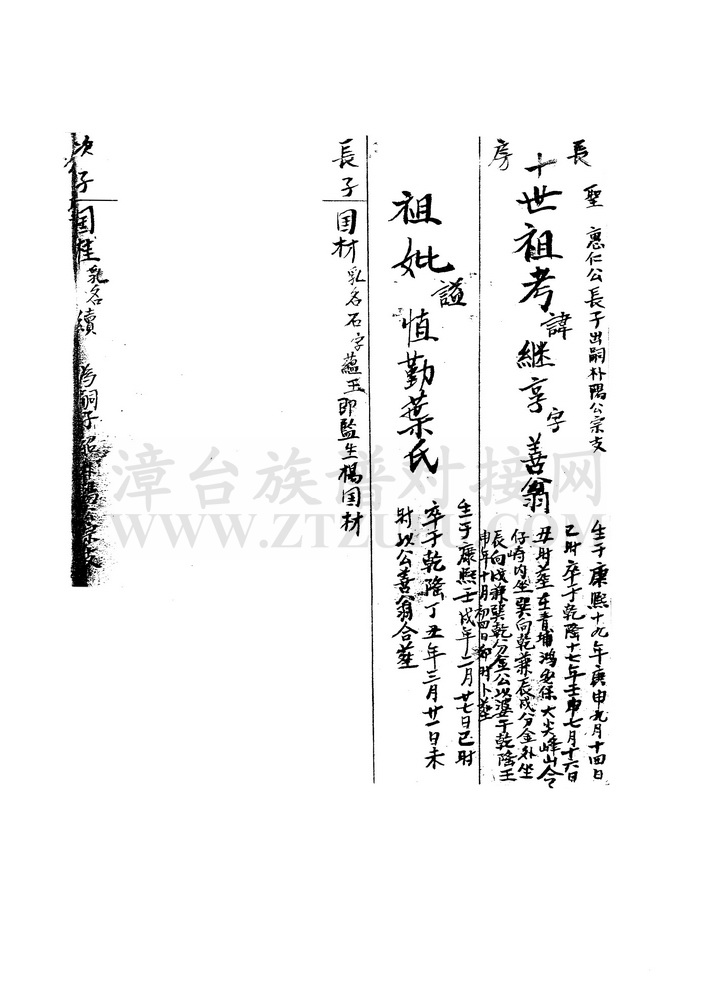 長房
聖 惠仁公長子出嗣朴陽公宗支
十世祖考諱継享字善翁
生于康熙十九年庚申九月十四日
己时卒于乾隆十七年壬申七月十六日
丑时塟在青埔鴻 保大尖峰山仑
仔崎内坐巽向乾兼辰戌分金外坐
辰向戌兼巽乾分金公以婆于乾隆壬
申年十月初四日卯时卜塟
祖妣諡慎勤葉氏
生于康熙壬戌年二月廿七日巳时
卒于乾隆丁丑年三月廿一日未
时以公善翁合塟
長子国材乳名石字蘊玉即監生楊国材
次子国桂乳名續 為嗣子紹 陽 宗支
漳台族谱对接网
WWW.ZTZUPU.COM